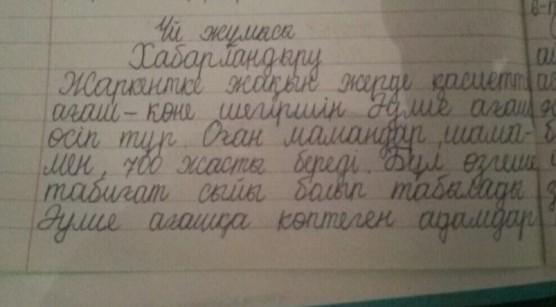 Үй жұмысы
Хабарландыру
Жаркентке жақын жерде қасиетті
ағаш – көне шегіршін Әулие ағаш
өсіп тұр. Оған мамандар шама-
мен, 700 жасты береді. Бұл өзгеше
табиғат сыйы болып табылады
Әулие ағашқа көптеген адамдар